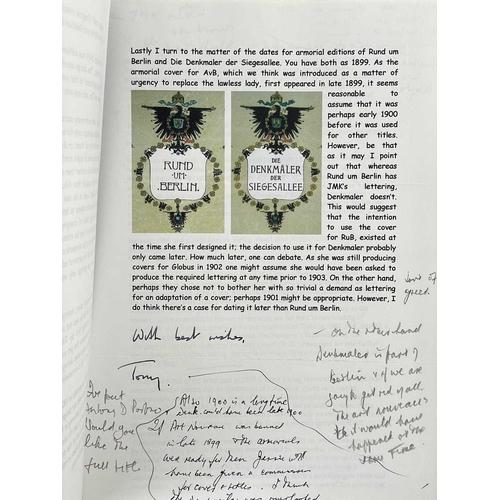 Lastly I turn to the matter of the dates for armorial editions of Rund um
Berlin and Die Denkmaler der Siegesallee. You have both as 1899. As the
armorial cover for AvB, which we think was introduced as a matter of
urgency to replace the lawless lady, first appeared in late 1899, it seems
reasonable to
assume that it was
perhaps early 1900
before it was used
for other titles.
However, be that
as it may I point
out that whereas
Rund um Berlin has
JMK's lettering,
Denkmaler doesn't.
This would suggest
that the intention
to use the cover
for RuB, existed at
RUND
·UM·
BERLIN.
DIE
DENKMÄLER
DER
SIEGESALLEE.
the time she first designed it; the decision to use it for Denkmaler probably
only came later. How much later, one can debate. As she was still producing
covers for Globus in 1902 one might assume she would have been asked to
produce the required lettering at any time prior to 1903. On the other hand,
perhaps they chose not to bother her with so trivial a demand as lettering
for an adaptation of a cover; perhaps 1901 might be appropriate. However, I
do think there's a case for dating it later than Rund um Berlin.
With best wishes,
Tony.
speed.
on the other hand
Denkmaler is part of
Berlin
The art nouveau
it would have
happened at the
same time.
I've put
Would you
like the
full title
Also 1900 is a long time
could have been late 1900
If Art Nouveau was banned
in late 1899 & the armorials
was ready for then Jessie
have been given a commission
for covers & titles. I think